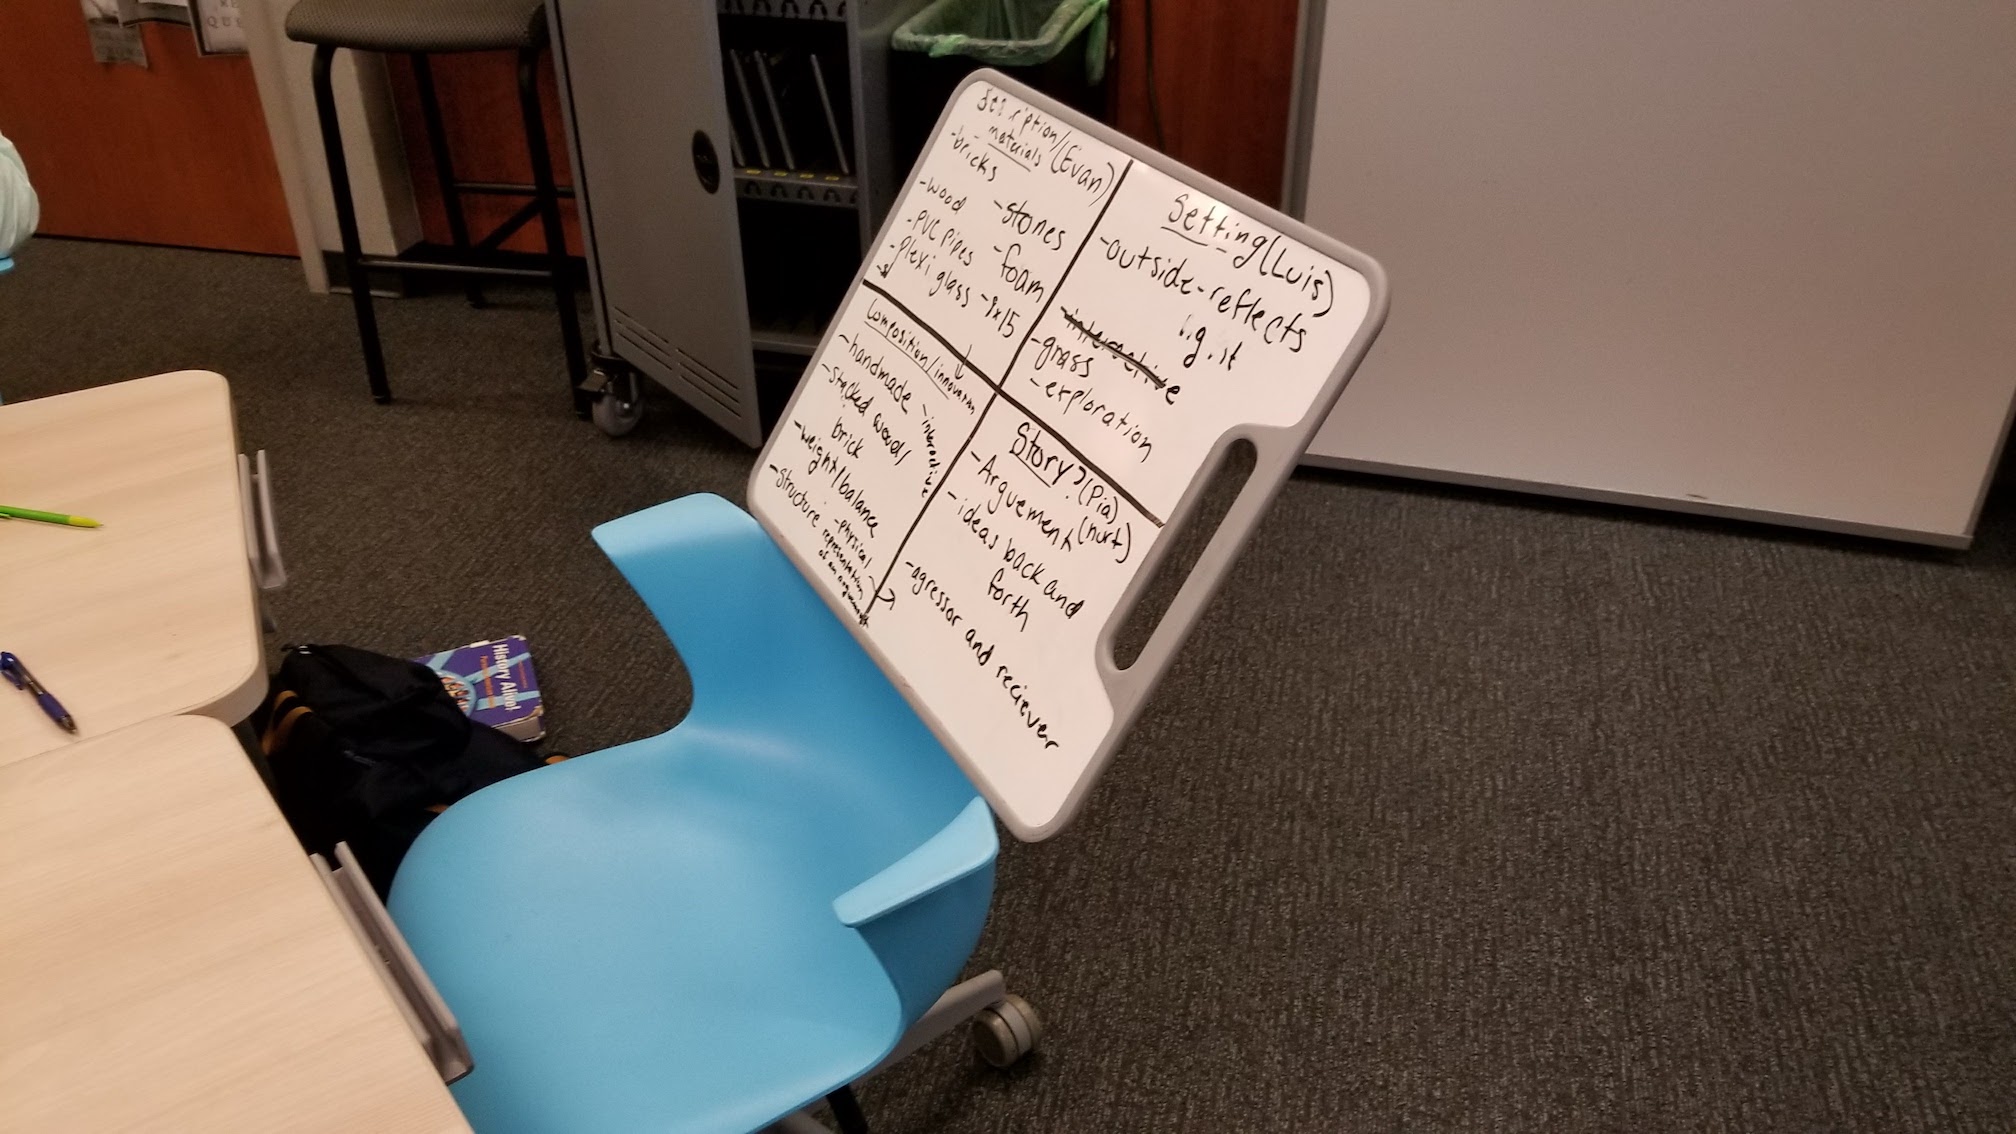 Description/(Evan)
- materials
- bricks
- wood
- stones
- PVC pipes
- foam
- Plexi glass
- 9x15
Setting (Luis)
- outside - reflects
light
- interactive
- grass
- exploration
Composition/innovation
- handmade
- interactive
- stacked wood/
brick
- weight/balance
- Structure
- physical
representation
of an arguement
Story? (Pia)
- Arguement (hurt)
- ideas back and
forth
- agressor and reciever
History Alive!